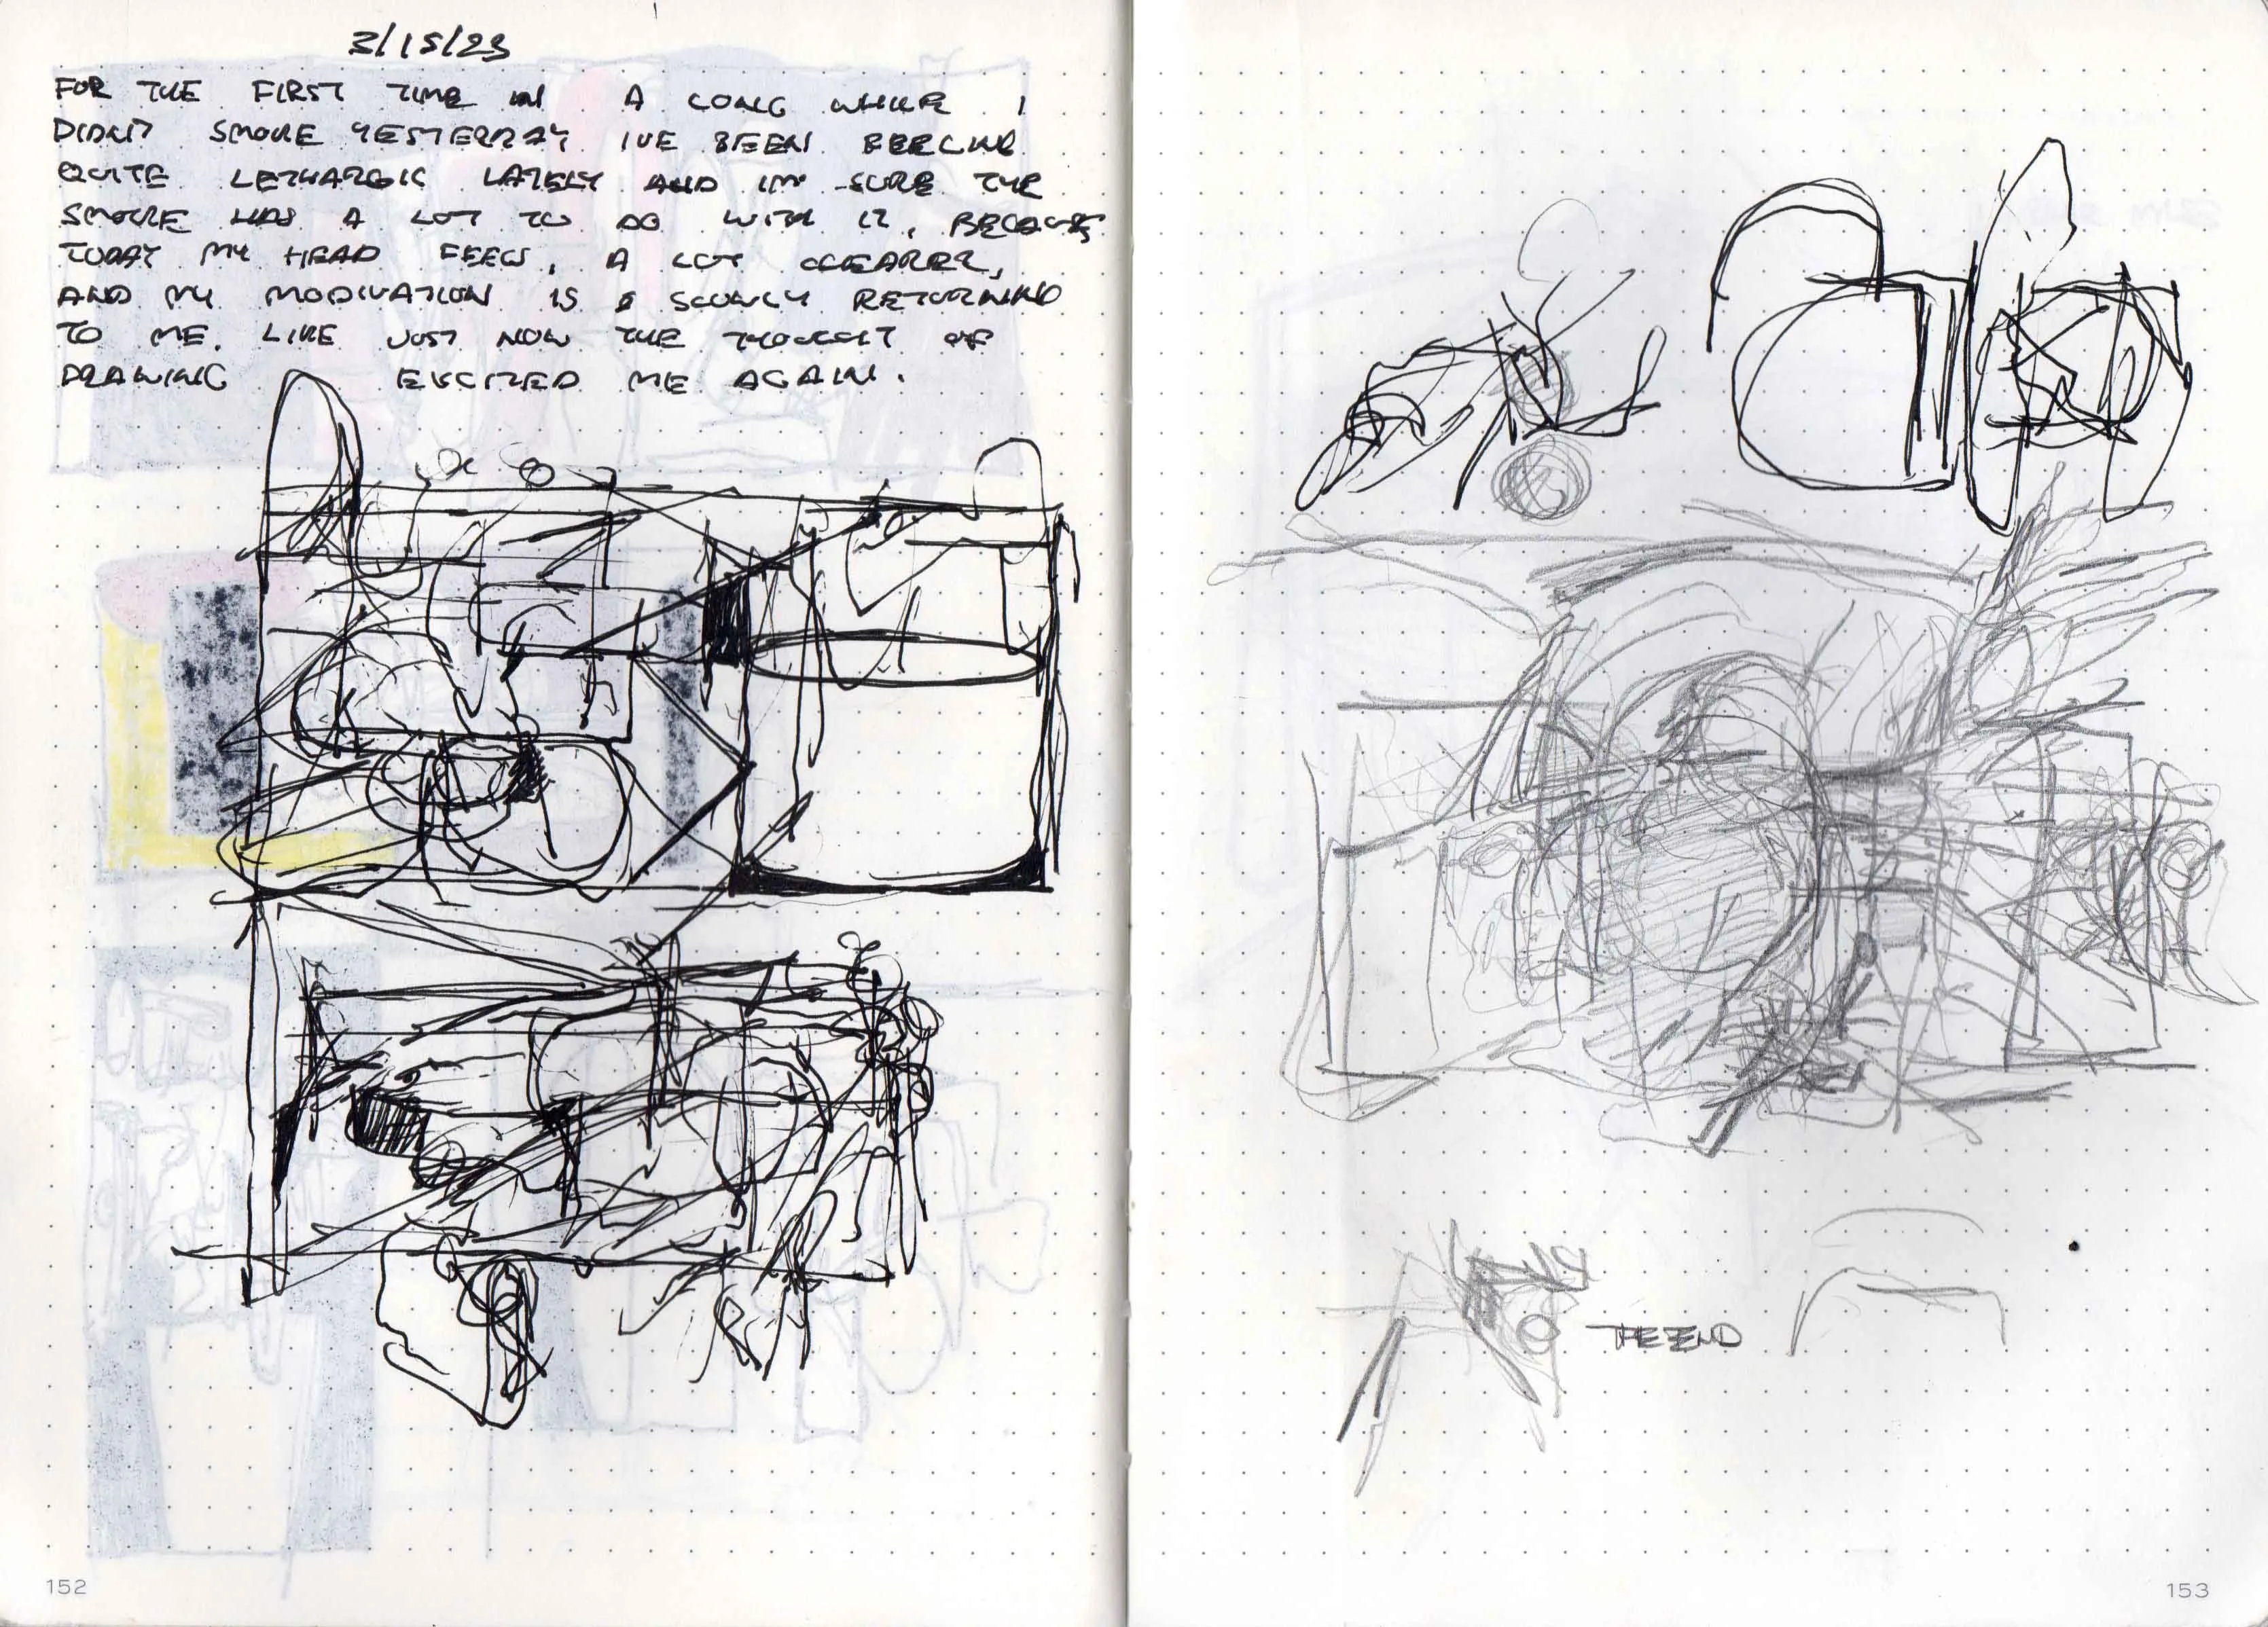 3/15/23
FOR THE FIRST TIME IN A LONG WHILE I
DIDN'T SMOKE YESTERDAY. I'VE BEEN FEELING
QUITE LETHARGIC LATELY AND IM SURE THE
SMOKE HAS A LOT TO DO WITH IT, BECAUSE
TODAY MY HEAD FEELS, A LOT CLEARER,
AND MY MODIVATION IS SLOWLY RETURNING
TO ME. LIKE JUST NOW THE THOUGHT OF
DRAWING EXCITED ME AGAIN.
THE END
152
153